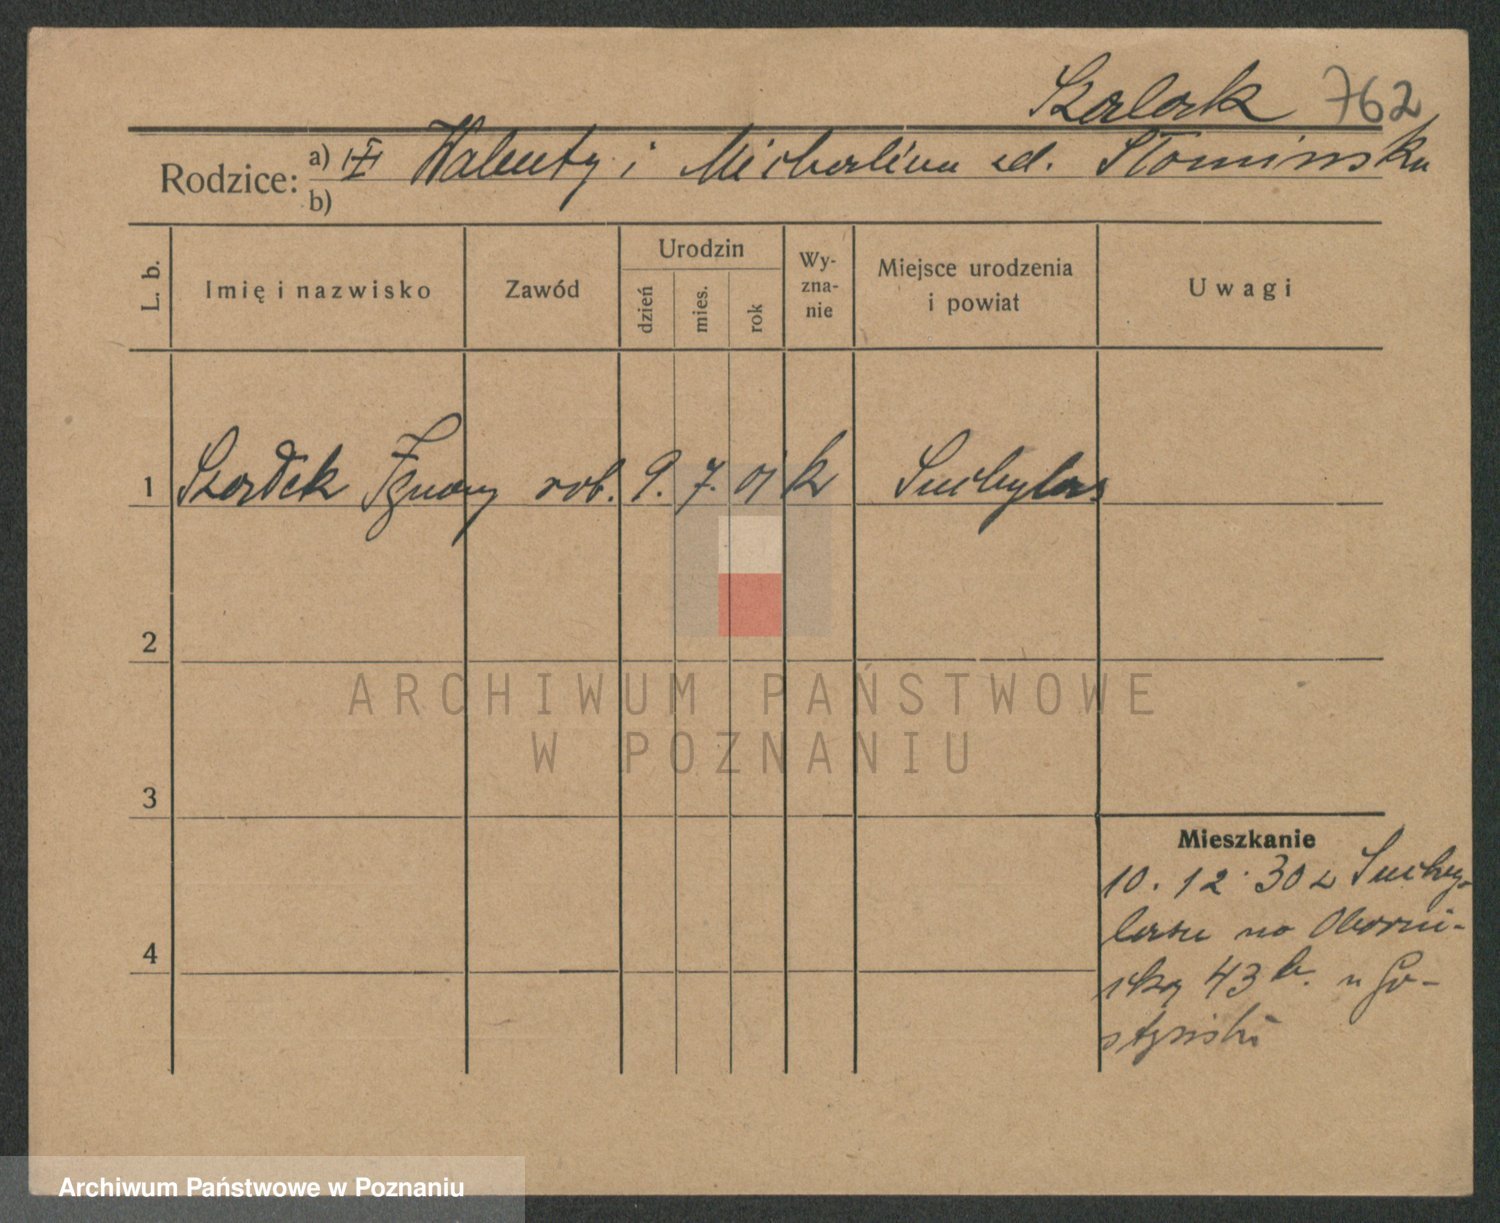 762
Rodzice: a) Walenty i Michalina zd. Słomińska
b)
L. b.
Imię i nazwisko
Zawód
Urodzin
dzień
mies.
rok
Wy-
zna-
nie
Miejsce urodzenia
i powiat
Uwagi
1 Ignacy rob. 9. 7. 01 k Suchylas
2
3
4
Mieszkanie
10. 12. 30 z Suchy-
lasu na Oborni-
ską 43
ARCHIWUM PAŃSTWOWE
W POZNANIU
Archiwum Państwowe w Poznaniu